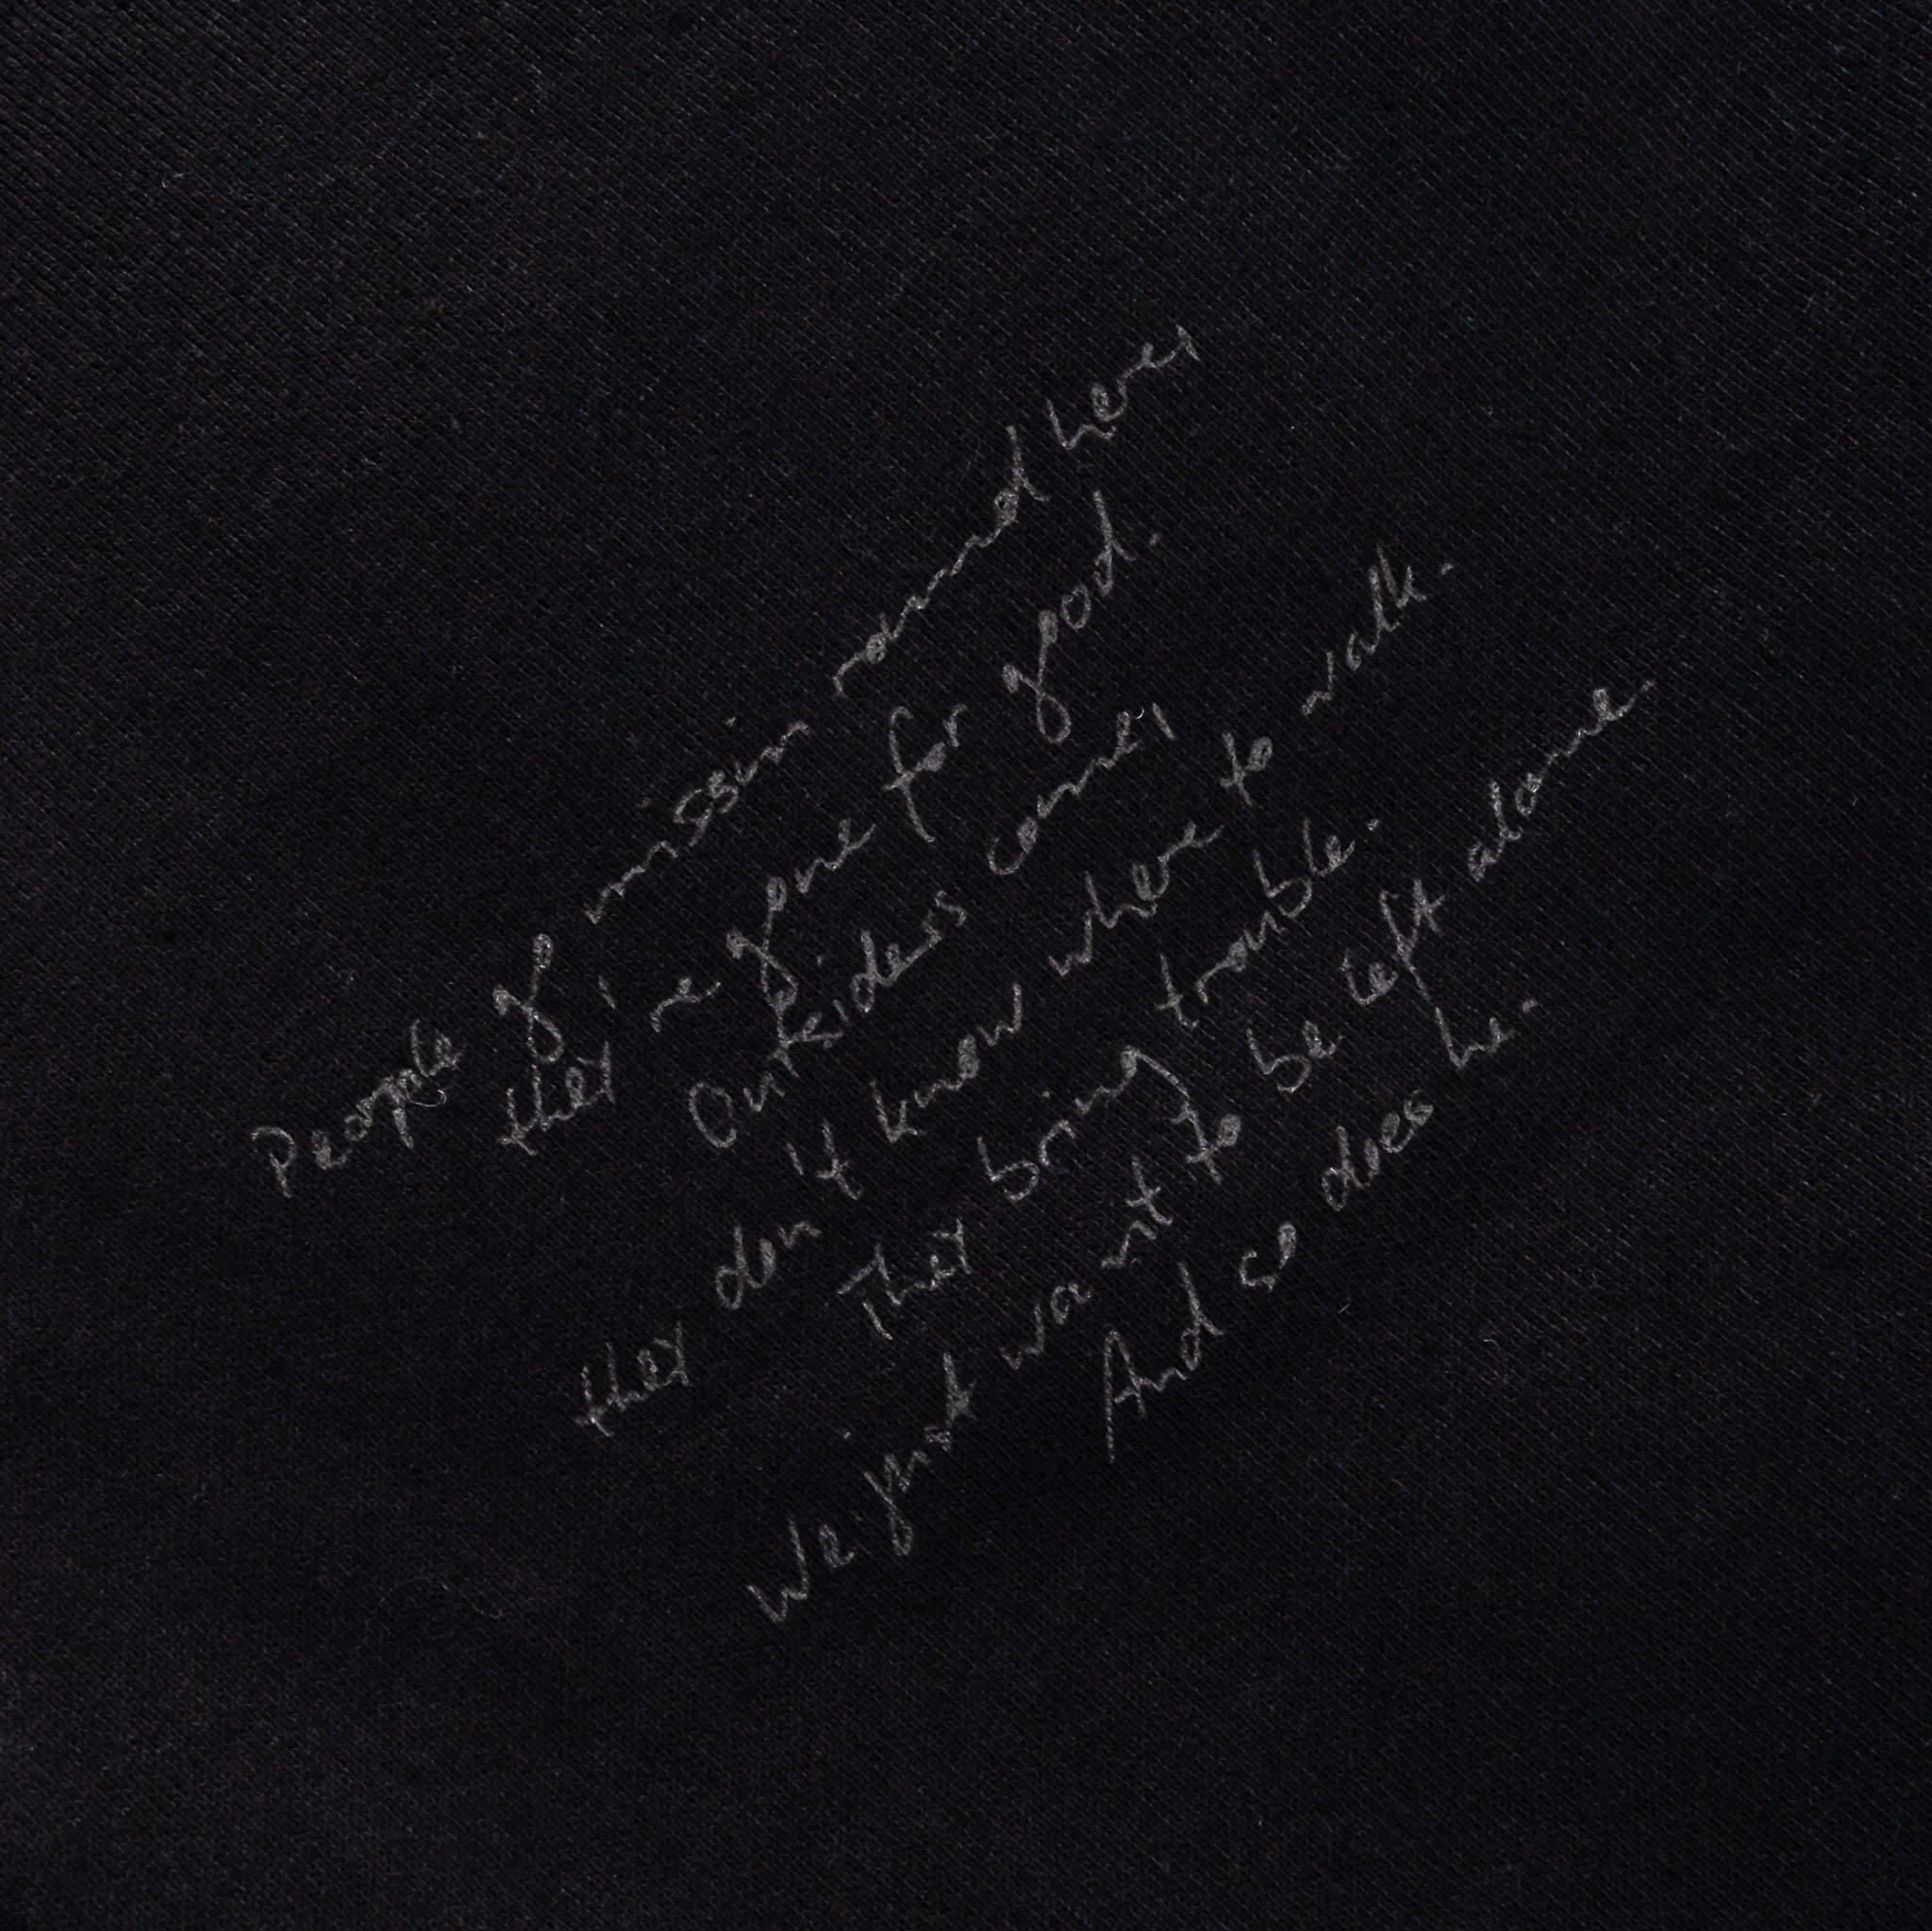 People g missin round here,
they're gone for good.
Outsiders come,
they don't know where to walk.
They bring trouble.
We just want to be left alone.
And so does he.